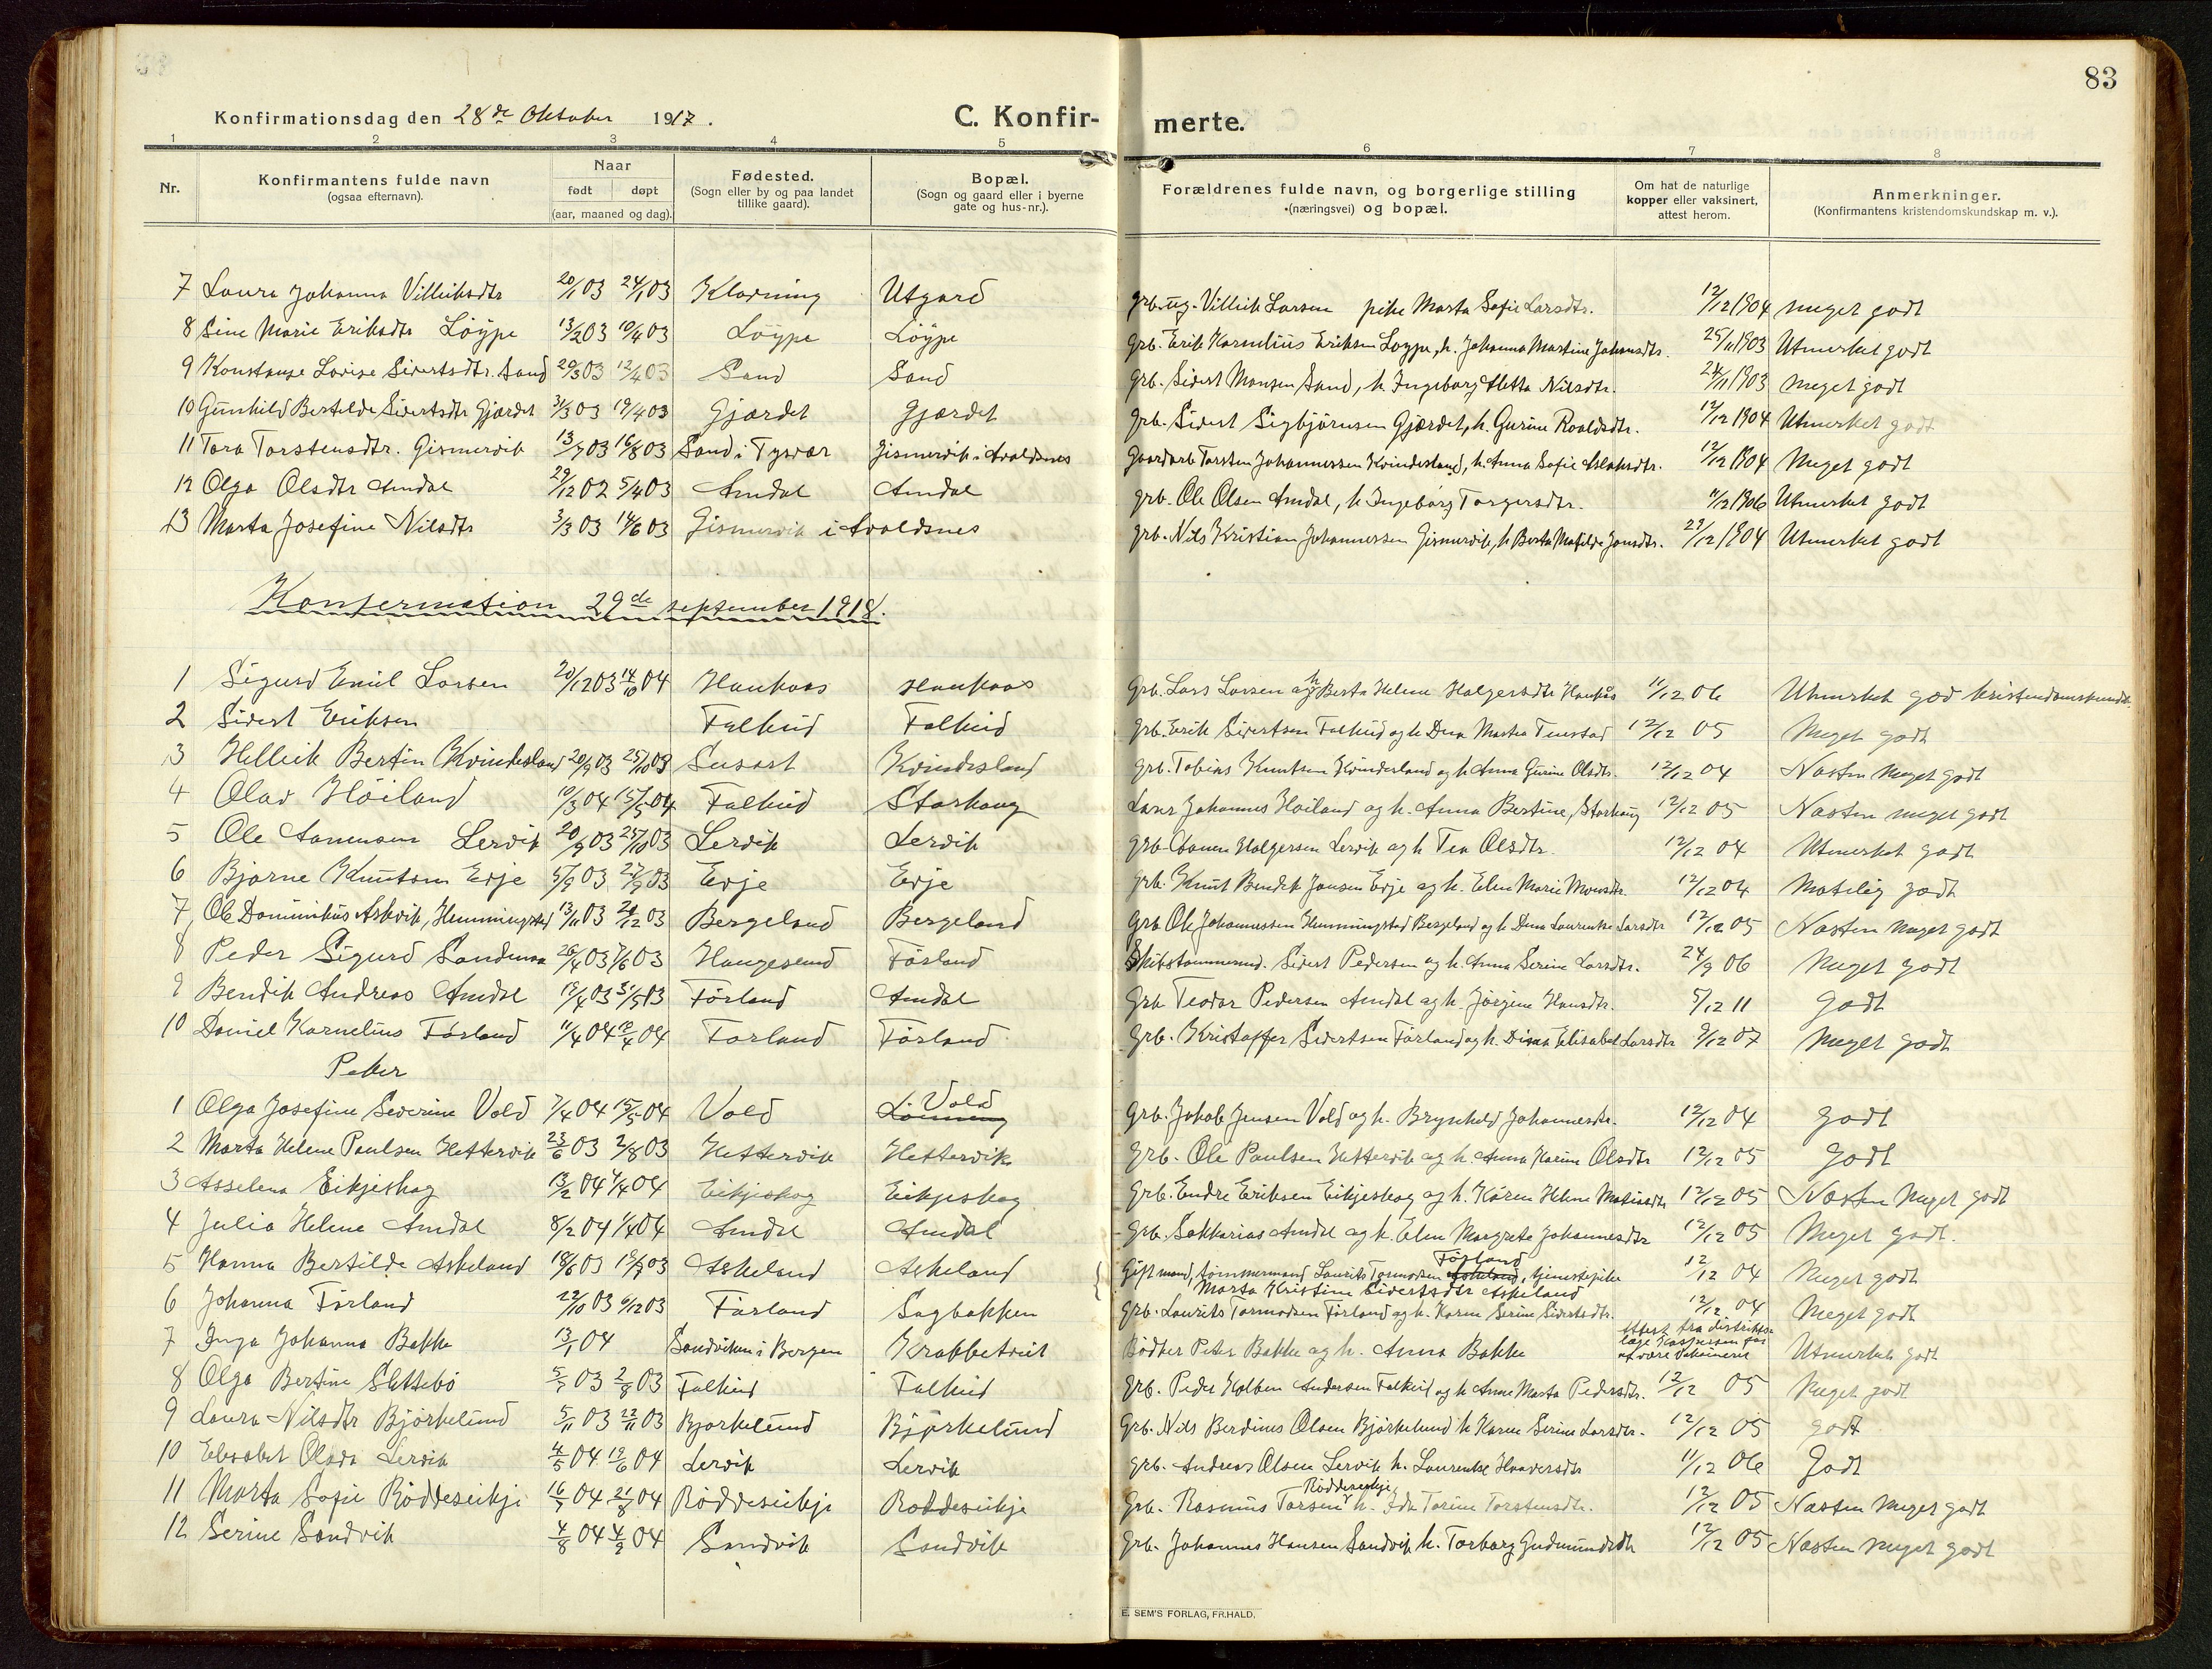 83
Konfirmationsdag den 28de Oktober 1917. C. Konfir- merte.
1 2 3 4 5 6 7 8
Nr. Konfirmantens fulde navn (ogsaa efternavn). Naar født døpt (aar, maaned og dag). Fødested. (Sogn eller by og paa landet tillike gaard). Bopæl. (Sogn og gaard eller i byerne gate og hus-nr.). Forældrenes fulde navn, og borgerlige stilling (næringsvei) og bopæl. Om hat de naturlige kopper eller vaksinert, attest herom. Anmerkninger. (Konfirmantens kristendomskundskap m. v.).
7 Laura Johanna Villiksdtr 20/1 03 24/1 03 Klovning Utgard grb. ug. Villik Larsen pike Marta Sofie Larsdtr. 12/12 1904 Meget godt
8 Sine Marie Eriksdtr Löype 13/2 03 10/4 03 Löype Löype grb. Erik Kornelius Eriksen Loype, h. Johanna Martine Johansdtr. 25/11 1903 Utmerket godt
9 Konstanse Lovise Sivertsdtr. Sand 29/3 03 12/4 03 Sand Sand grb. Sivert Monsen Sand, h. Ingeborg Aletta Nilsdtr. 24/11 1903 Meget godt
10 Gunhild Bertilde Sivertsdtr Gjærdet 31/3 03 19/4 03 Gjærdet Gjærdet grb. Sivert Sigbjörnsen Gjærdet, h. Gurine Roaldsdtr. 12/12 1904 Utmerket godt
11 Tora Torstensdtr. Gismervik 13/7 03 16/8 03 Sand i Tysvær Gismervik i Avaldsnes Gaardarb Torsten Johannessen Kvindesland, h. Anna Sofie Aslaksdtr. 12/12 1904 Meget godt
12 Olga Olsdtr Amdal 29/12 02 5/4 03 Amdal Amdal grb. Ole Olsen Amdal, h Ingeborg Torgersdtr. 11/12 1906 Utmerket godt
13 Marta Josefine Nilsdtr 3/3 03 14/6 03 Gismervik i Avaldsnes grb. Nils Kristian Johannessen Gismervik, h Berta Matilde Jonsdtr. 29/12 1904 Utmerket godt
Konfirmation 29de september 1918.
1 Sigurd Emil Larsen 20/12 03 14/10 04 Haukaas Haukaas Grb. Lars Larsen og h Berta Helene Holgersdtr Haukås 11/12 06 Utmerket god kristendomskundsk.
2 Sivert Eriksen Falkeid Falkeid grb. Erik Sivertsen Falkeid og h Dna Martea Tuestad 12/12 05 Meget godt
3 Hellik Bertin Kvindesland 20/9 03 25/10 03 Susort Kvindesland grb. Tobias Knutsen Kvindesland og h Anna Gurine Olsdtr. 12/12 04 Næsten Meget godt
4 Olav Höiland 10/3 04 15/5 04 Falkeid Storhaug Lærer Johannes Höiland og h. Anna Bertine, Storhaug 12/12 05 Næsten meget godt
5 Ole Aanensen Lervik 20/9 03 25/10 03 Lervik Lervik grb. Aanen Holgersen Lervik og h Tea Olsdtr. 12/12 04 Utmerket godt
6 Bjarne Knutsen Evje 5/9 03 27/9 03 Evje Evje grb. Knut Bendik Jansen Evje og h. Elen Marie Monsdtr. 12/12 04 Måtelig godt
7 Ole Dominikus Askvik, Hemmingstad 13/11 03 20/12 03 Bergeland Bergeland Grb Ole Johannessen Hemmingstad Bergeland og h Dina Laurentse Larsdtr 12/12 05 Næsten Meget godt
8 Peder Sigurd Sandmoa 26/4 03 7/6 03 Haugesund Förland Skibstømmermd. Sivert Pedersen og h. Anna Serine Larsdtr. 24/9 06 Meget Godt
9 Bendik Andreas Amdal 12/4 03 31/5 03 Förland Amdal Grb Teodor Pedersen Amdal og h. Jörgine Hansdtr. 5/12 11 Godt
10 Daniel Kornelius Förland 11/4 04 10/4 04 Förland Förland Grb. Kristoffer Sivertsen Förland og h. Dina Elisabet Larsdtr 9/12 07 Meget godt
Piker
1 Olga Josefine Severine Vold 7/4 04 15/5 04 Vold Vold Grb. Jakob Jensen Vold og h. Brynhild Johannesdtr. 12/12 04 Godt
2 Marta Helene Paulsen Hettervik 23/6 03 2/8 03 Hettervik Hettervik Grb. Ole Paulsen Hettervik og h. Anna Karine Olsdtr 12/12 05 Godt
3 Asselena Eikjeskog 13/2 04 4/4 04 Eikjeskog Eikjeskog Grb. Endre Eriksen Eikjeskog og h. Karen Helene Matiasdtr 12/12 05 Næsten Meget godt
4 Julia Helene Amdal 8/2 04 1/4 04 Amdal Amdal grb. Sakkarias Amdal og h. Elen Margrete Johannesdtr 12/12 05 Meget godt.
5 Hanna Bertilde Askeland 18/6 03 19/7 03 Askeland Askeland Gift mand, tömmermand Laurits Tormodsen Askeland Förland, tjenestepike 12/12 04 Meget godt
Marta Kristine Sivertsdtr Askeland
6 Johanna Förland 22/10 03 6/12 03 Förland Sagbakken grb. Laurits Tormodsen Förland og h. Karen Serine Sivertsdtr. 12/12 04 Meget godt
7 Inga Johanna Bakke 13/1 04 Sandviken i Bergen Krabbetveit Bödker Peter Bakke og h. Anna Bakke Attest fra distrikts- læge Kaspersen for at være vaksinert Utmerket godt
8 Olga Bertine Slettebö 5/7 03 2/8 03 Falkeid Falkeid grb. Peder Kolben Andersen Falkeid og h Anne Marta Pedersdtr. 12/12 05 Meget godt
9 Laura Nilsdtr Björkelund 5/11 03 22/11 03 Bjorkelund Björkelund Grb. Nils Berdines Olsen Björkelund h Karen Serine Larsdtr. 12/12 05 godt
10 Elisabet Olsdtr Lervik 4/5 04 12/6 04 Lervik Lervik grb. Andreas Olsen Lervik h. Laurentse Haaversdtr 11/12 06 Godt
11 Marta Sofie Röddeseikje 16/7 04 21/8 04 Röddeseikje Roddeseikje Grb. Rasmus Torsen Röddeseikje h. Ida Torine Torstensdtr. 12/12 05 Næsten Meget godt
12 Serine Sandvik 4/8 04 4/9 04 Sandvik Sandvik Grb. Johannes Hansen Sandvik h. Torborg Gudmundsdtr 12/12 05 Næsten Meget godt
E. SEM'S FORLAG, FR.HALD.